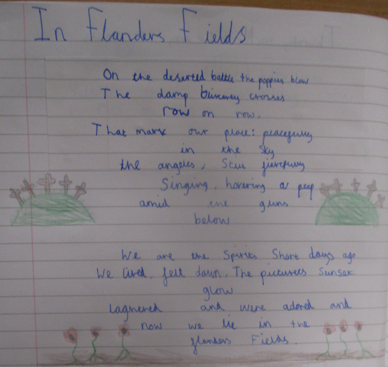 In Flanders Fields
On the deserted battle the poppies blow
The damp crosses
row on row.
That mark our place: peacefully
in the sky
the angles, Still
Singing, hovering a peep
amid the guns
below
We are the Spirits Short days ago
We lived, felt dawn, The pictures Sunset
glow
and were adored and
now we lie in the
flanders Fields.